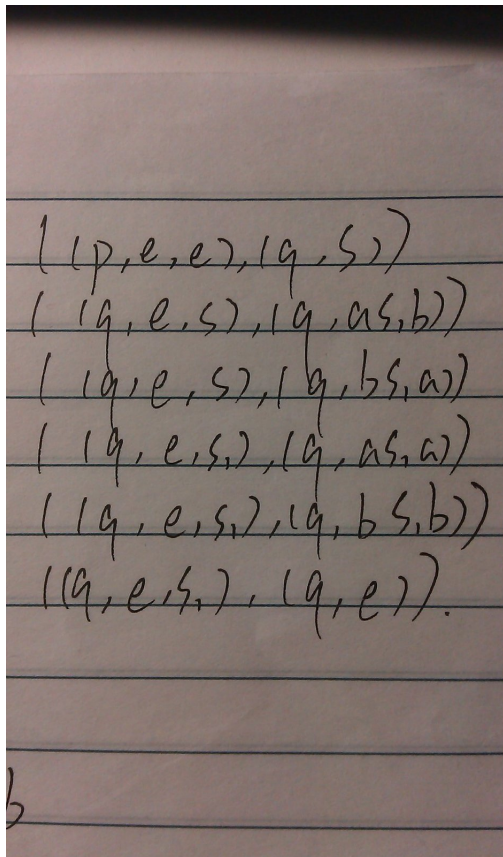 ((p, e, e), (q, S))
((q, e, S), (q, aS₁b))
((q, e, S), (q, bS₁a))
((q, e, S₁), (q, aS₁a))
((q, e, S₁), (q, bS₁b))
((q, e, S₁), (q, e)).
b